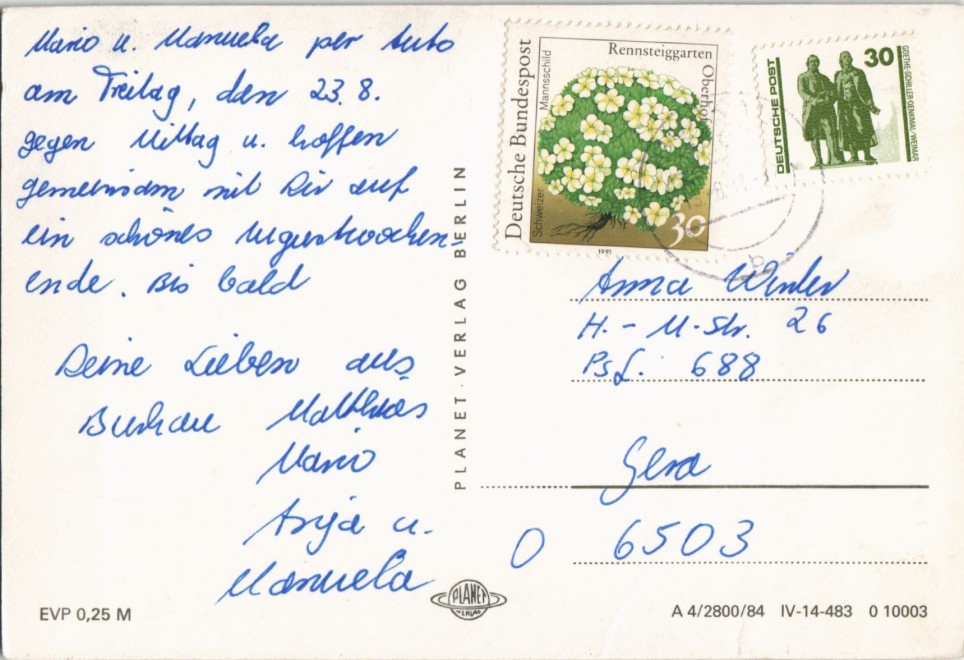 Mario u. Manuela per Auto
am Freitag, den 23.8.
gegen Mittag u. hoffen
gemeinsam mit Dir auf
ein schönes Augustwochen-
ende. Bis bald
Deine Lieben aus
Matthias
Mario
Anja u.
Manuela
EVP 0,25 M
PLANET-VERLAG BERLIN
PLANET
VERLAG
Deutsche Bundespost
Rennsteiggarten
Oberhof
Schweizer Mannsschild
30
1991
DEUTSCHE POST
30
GOETHE-SCHILLER-DENKMAL/WEIMAR
Anna Winter
H.-M-Str. 26
Psf. 688
Gera
O 6503
A 4/2800/84 IV-14-483 0 10003